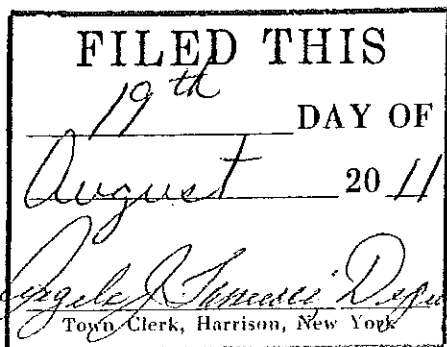 FILED THIS
19th DAY OF
August 20 11
Angela J
Town Clerk, Harrison, New York